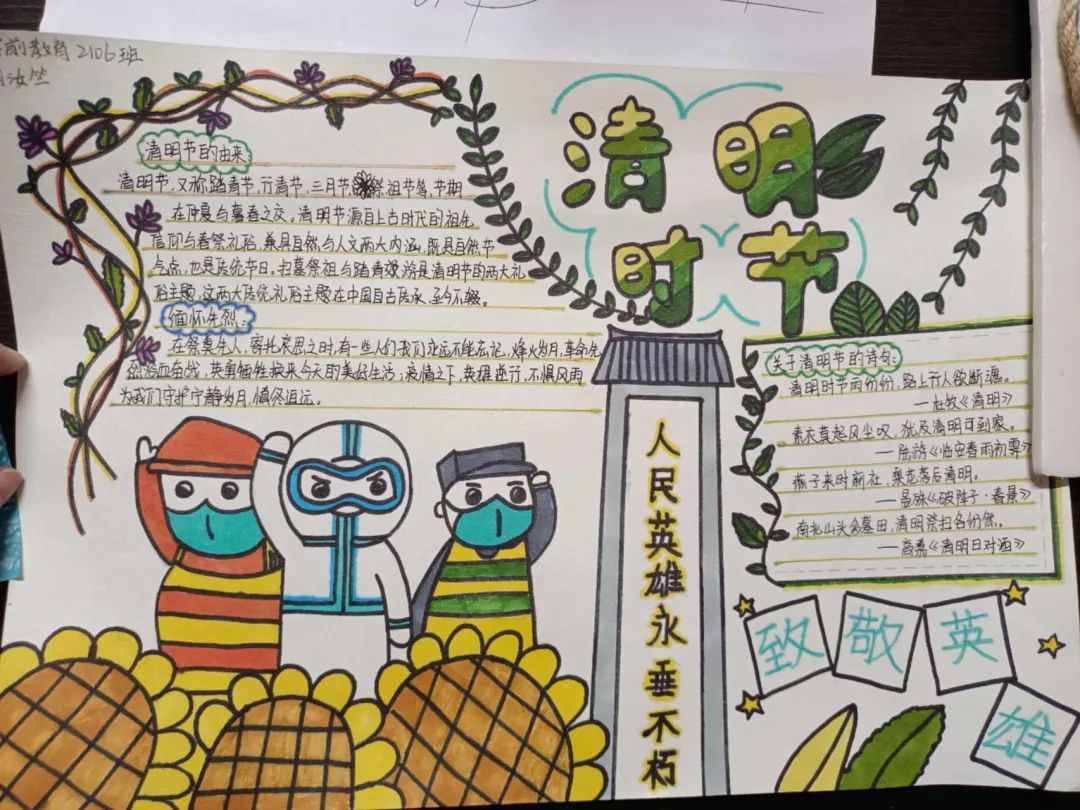 前教育2106班
汝竺
清明时节
清明节的由来:
清明节,又称踏青节,行清节,三月节祭祖节等,节期
在仲春与暮春之交。清明节源自上古时代的祖先
信仰与春祭礼俗,兼具自然与人文两大内涵,既是自然节
气点,也是传统节日,扫墓祭祖与踏青郊游是清明节的两大礼
俗主题,这两大传统礼俗主题在中国自古传承,至今不辍。
缅怀先烈:
在祭奠先人,寄托哀思之时,有一些人们我们永远不能忘记,烽火岁月,革命先
烈浴血奋战,英勇牺牲换来今天的美好生活;疫情之下,英雄逆行,不惧风雨
为我们守护宁静岁月,慎终追远。
人民英雄永垂不朽
关于清明节的诗句:
清明时节雨纷纷,路上行人欲断魂。
—杜牧《清明》
素衣莫起风尘叹,犹及清明可到家。
—陆游《临安春雨初霁》
燕子来时新社,梨花落后清明。
—晏殊《破阵子·春景》
南北山头多墓田,清明祭扫各纷然。
—高翥《清明日对酒》
致敬英雄